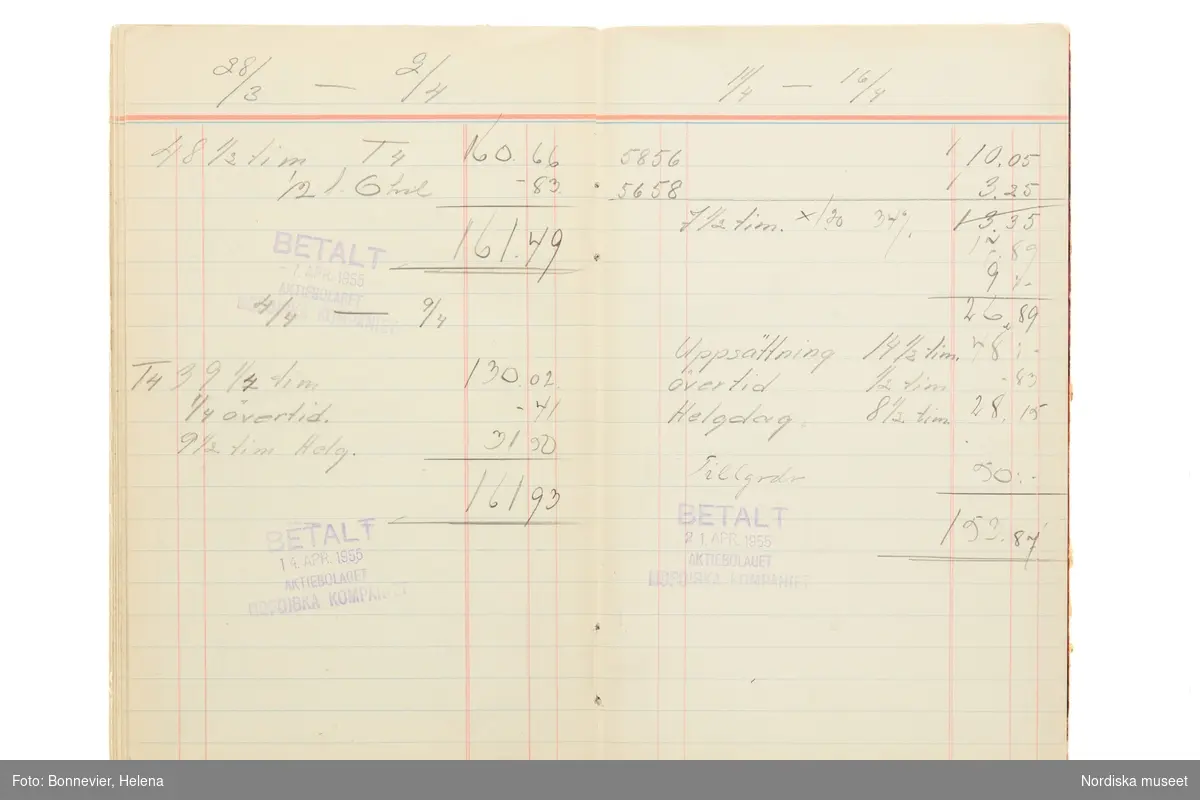 28/3 — 2/4
48 1/2 tim T4 160.66
1/2 t. Ö -83
161.49
BETALT
-7. APR. 1955
AKTIEBOLAGET
KOMPANIET
4/4 — 9/4
T4 39 1/4 tim 130.02.
1/4 övertid. -41
9 1/2 tim Helg. 31 50
161 93
BETALT
14. APR. 1955
AKTIEBOLAGET
NORDISKA KOMPANIET
11/4 — 16/4
5856 10.05
5658 3.25
7 1/2 tim. x 1.20 34%. 13.35
89
9 :-
26.89
Uppsättning 14 1/2 tim. 48 :-
övertid 1/2 tim -83
Helgdag. 8 1/2 tim. 28.15
Tillgodr 50:-
153.87
BETALT
21. APR. 1955
AKTIEBOLAGET
NORDISKA KOMPANIET
Foto: Bonnevier, Helena
Nordiska museet